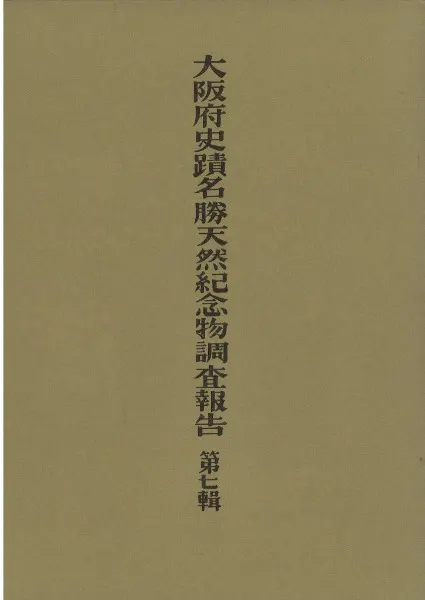 大阪府史蹟名勝天然紀念物調査報告 第七輯